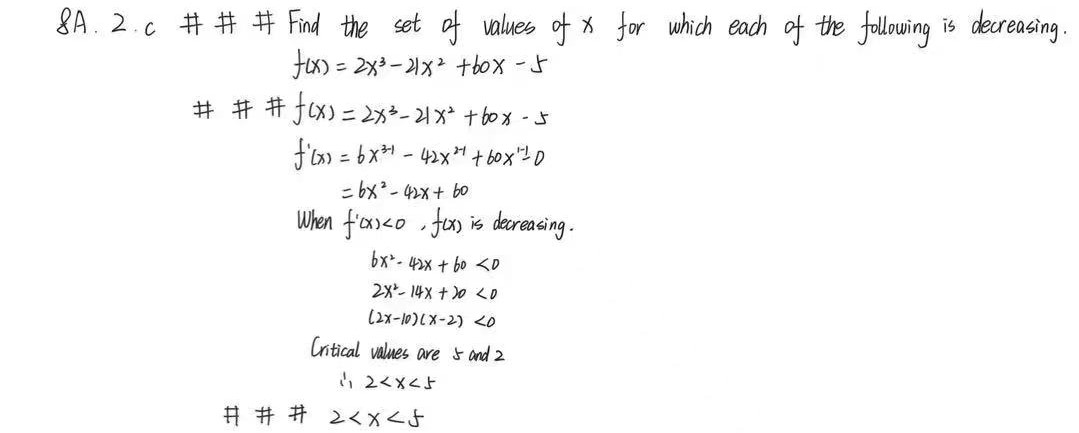 8A. 2. c # # # Find the set of values of x for which each of the following is decreasing.
f(x) = 2x³ - 21x² + 60x - 5
# # # f(x) = 2x³ - 21x² + 60x - 5
f'(x) = 6x³⁻¹ - 42x²⁻¹ + 60x¹⁻¹ - 0
= 6x² - 42x + 60
When f'(x)<0 , f(x) is decreasing.
6x² - 42x + 60 <0
2x² - 14x + 20 <0
(2x-10)(x-2) <0
Critical values are 5 and 2
∴ 2<x<5
# # # 2<x<5